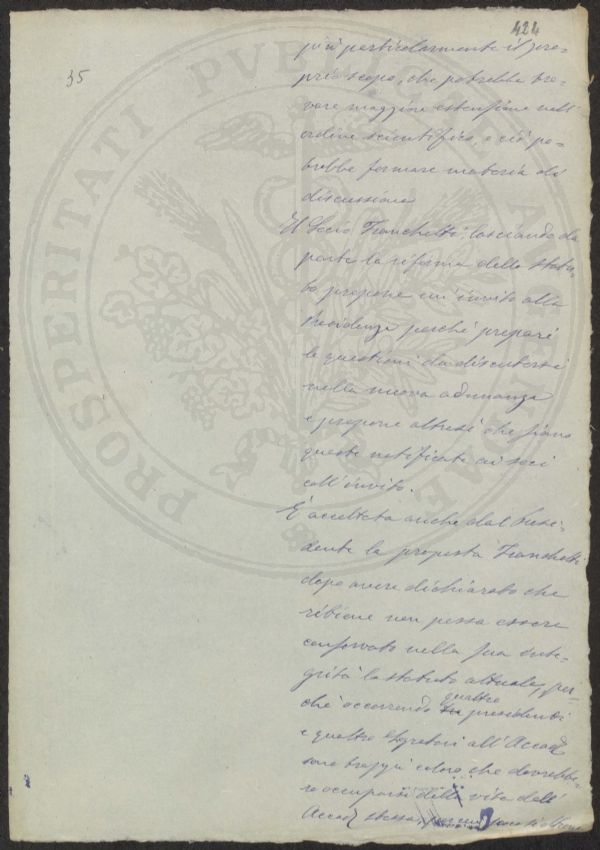 424
35
più particolarmente il pro-
prio scopo, che potrebbe tro-
vare maggiore estensione nell'
ordine scientifico, e ciò po-
trebbe formare materia di
discussione
Il Socio Franchetti lasciando da
parte la riforma dello Statu-
to, propone un invito alla
Presidenza perché prepari
le questioni da discutersi
nella nuova adunanza
e propone altresì che siano
queste notificate ai soci
coll'invito.
È accettata anche dal Presi-
dente la proposta Franchetti
dopo avere dichiarato che
ritiene non possa essere
conservato nella sua inte-
grità lo statuto attuale, per-
ché occorrendo quattro presidenti
e quattro segretari all'Accad
sono troppi coloro che dovrebbe-
ro occuparsi della vita dell'
Accad stessa,
PROSPERITATI PVBLICAE AVGENDAE